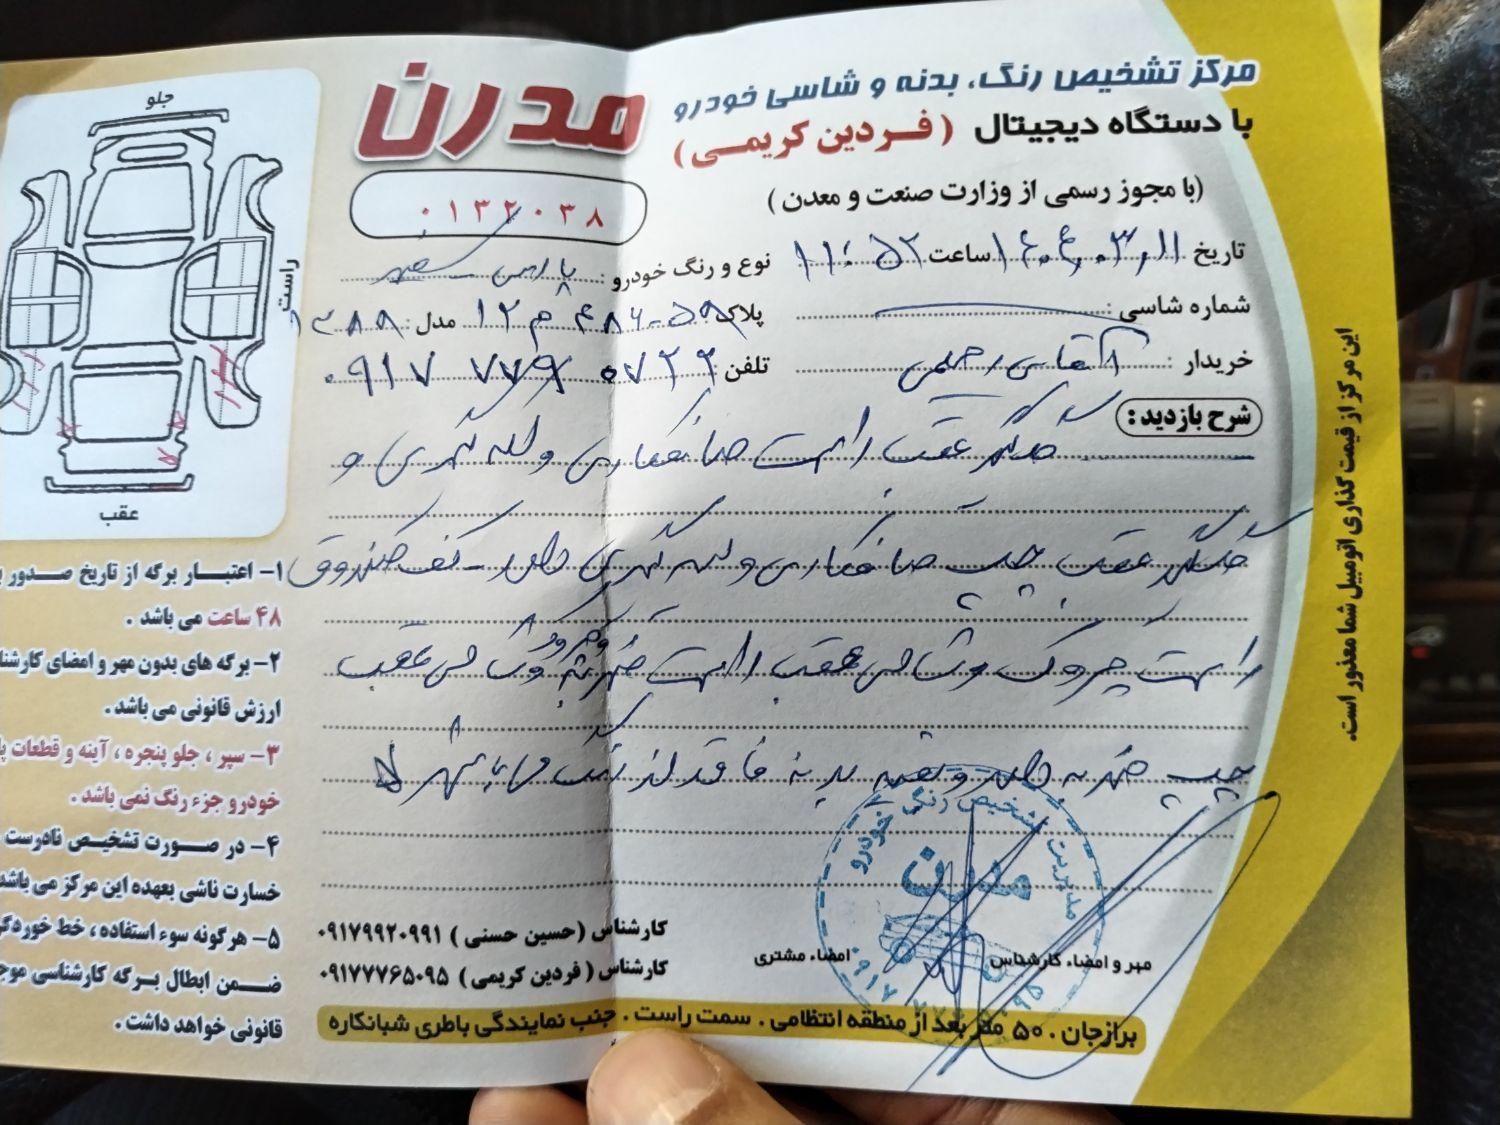 مرکز تشخیص رنگ، بدنه و شاسی خودرو
مدرن
با دستگاه دیجیتال (فردین کریمی)
(با مجوز رسمی از وزارت صنعت و معدن)
۰۱۳۲۰۳۸
تاریخ ۱۴۰۴,۰۳,۱۱ ساعت ۱۱:۵۲ نوع و رنگ خودرو: پارس سفید
شماره شاسی: پلاک: ۵۹-۴۸۶ م ۱۲ مدل: ۱۳۸۸
خریدار: آقای رحیمی تلفن: ۰۹۱۷ ۷۷۹ ۰۷۲۲
شرح بازدید:
گلگیر عقب راست صافکاری و لکه گیری و
گلگیر عقب چپ صافکاری و لکه گیری دارد - کف صندوق
راست چروک و شاسی عقب راست ضربه و شاسی عقب
چپ ضربه دارد و بقیه بدنه فاقد رنگ
جلو
راست
عقب
۱- اعتبار برگه از تاریخ صدور
۴۸ ساعت می باشد.
۲- برگه های بدون مهر و امضای
ارزش قانونی می باشد.
۳- سپر، جلو پنجره، آینه و قطعات
خودرو جزء رنگ نمی باشد.
۴- در صورت تشخیص نادرست
خسارت ناشی بعهده این مرکز می باشد
۵- هرگونه سوء استفاده، خط
ضمن ابطال برگه کارشناسی
قانونی خواهد داشت.
این مرکز از قیمت گذاری اتومبیل شما معذور است.
مدیریت تشخیص رنگ خودرو
مدرن
کارشناس (حسین حسنی) ۰۹۱۷۹۹۲۰۹۹۱
کارشناس (فردین کریمی) ۰۹۱۷۷۷۶۵۰۹۵
مهر و امضاء کارشناس
امضاء مشتری
برازجان. ۵۰ متر بعد از منطقه انتظامی. سمت راست. جنب نمایندگی باطری شبانکاره